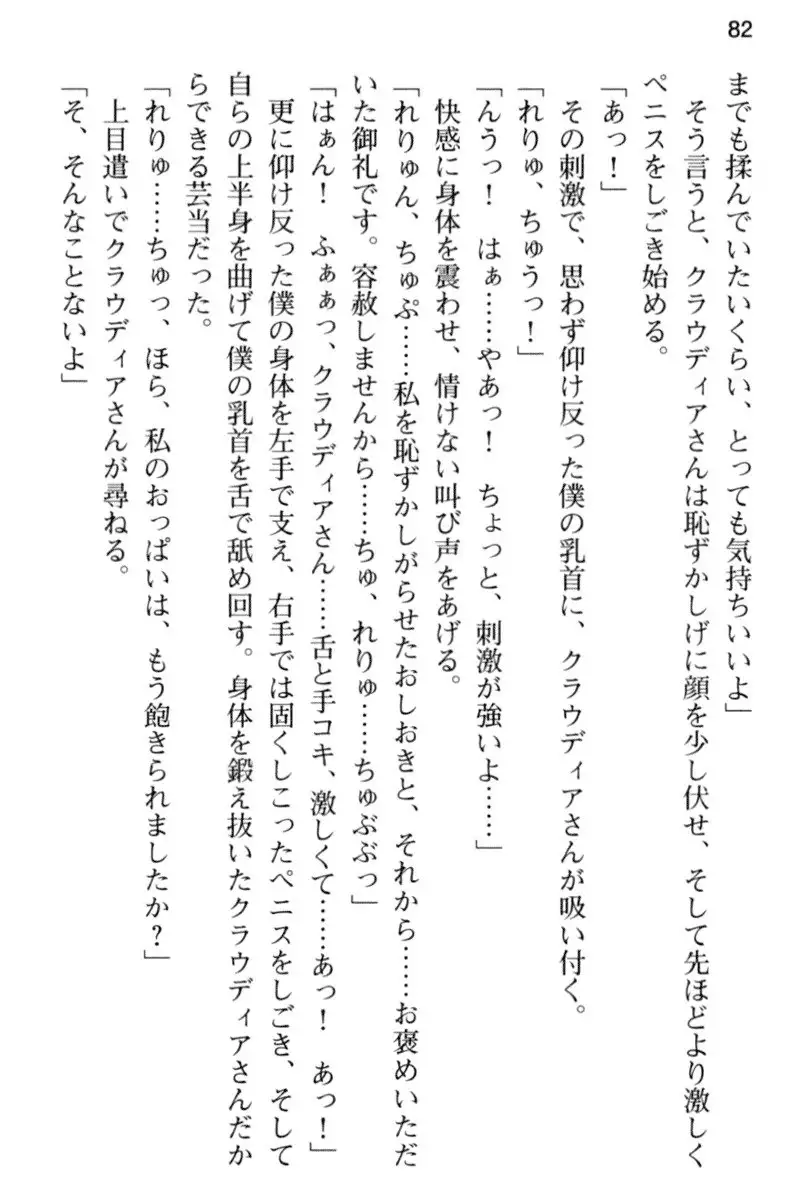 82
までも揉んでいたいくらい、とっても気持ちいいよ」
そう言うと、クラウディアさんは恥ずかしげに顔を少し伏せ、そして先ほどより激しく
ペニスをしごき始める。
「あっ！」
その刺激で、思わず仰け反った僕の乳首に、クラウディアさんが吸い付く。
「れりゅ、ちゅうっ！」
「んうっ！　はぁ……やあっ！　ちょっと、刺激が強いよ……」
快感に身体を震わせ、情けない叫び声をあげる。
「れりゅん、ちゅぷ……私を恥ずかしがらせたおしおきと、それから……お褒めいただ
いた御礼です。容赦しませんから……ちゅ、れりゅ……ちゅぶぶっ」
「はぁん！　ふぁぁっ、クラウディアさん……舌と手コキ、激しくて……あっ！　あっ！」
更に仰け反った僕の身体を左手で支え、右手では固くしこったペニスをしごき、そして
自らの上半身を曲げて僕の乳首を舌で舐め回す。身体を鍛え抜いたクラウディアさんだか
らできる芸当だった。
「れりゅ……ちゅっ、ほら、私のおっぱいは、もう飽きられましたか？」
上目遣いでクラウディアさんが尋ねる。
「そ、そんなことないよ」